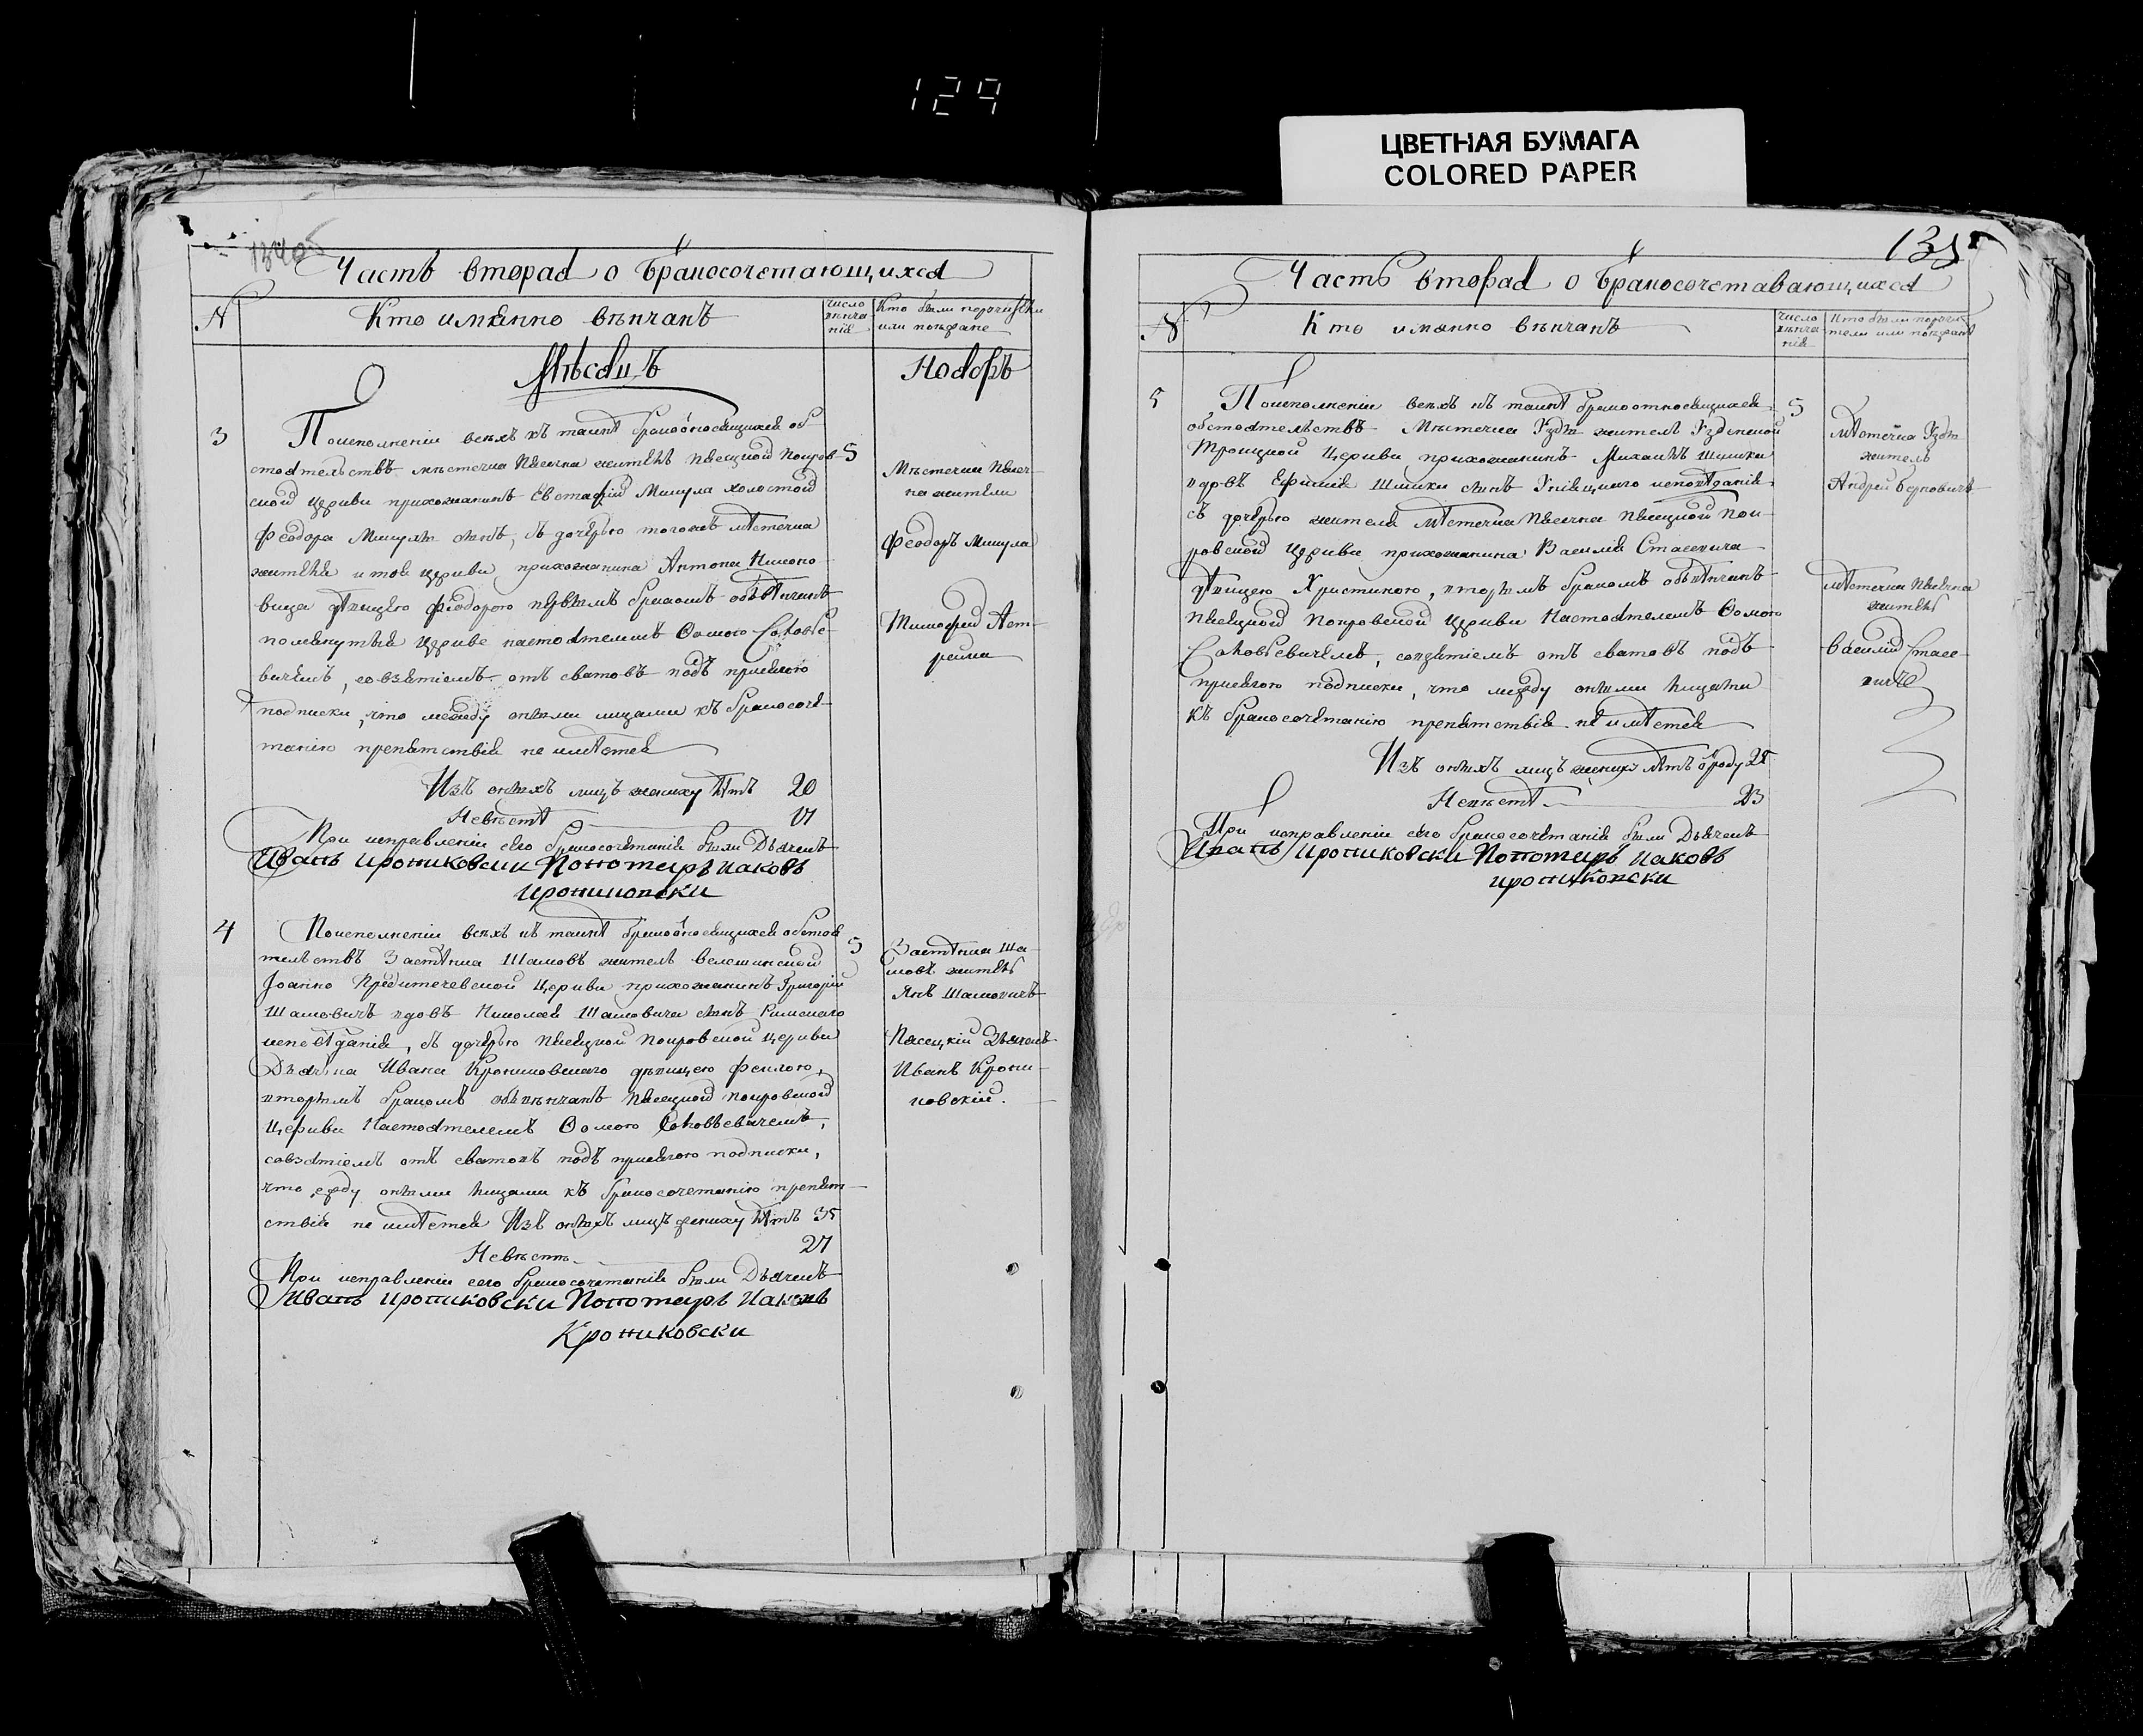 129
ЦВЕТНАЯ БУМАГА
COLORED PAPER
134об
Часть вторая о бракосочетающихся
N
Кто имянно вѣнчанъ
число вѣнчанія
Кто были поручители или поѣзжане
Мѣсяцъ
Ноября
3
Поисполненіи всѣхъ къ таинѣ бракоотносящихся об-
стоятельствъ мѣстечка Пѣсечна житель Пѣсецкой Покров-
5
ской Церкви прихожанинъ Евстафій Микула холостой
Феодора Микулы сынъ, съ дочерью тогожъ мѣстечка
жителя и той церкви прихожанина Антона
дѣвицею Феодорою первымъ бракомъ обвѣнчанъ
помянутыя Церкве настоятелемъ Ѳомою
вичемъ, совзятіемъ отъ сватовъ подъ присягою
подписки, что между оными лицами къ бракосоче-
танію препятствія не имѣется
Изъ оныхъ лицъ жениху лѣтъ 20
Невѣстѣ
При исправленіи сего бракосочетанія были Дьячекъ
Иванъ Крониковски Понотмаръ Иаковъ
Крониковски
Мѣстечка Пѣсеч-
на жители
Феодоръ Микула
Тимофей
4
Поисполненіи всѣхъ къ таинѣ бракоотносящихся обстоя-
тельствъ Застѣнка Шамовъ житель Велешинской
5
Іоанно Предитечевской Церкви прихожанинъ Григорій
Шамовичъ вдовъ Николая Шамовича сынъ Римскаго
исповѣданія, съ дочерью Пѣсецкой Покровской Церкви
Дьячка Ивана Крониковскаго дѣвицею Феклою,
вторымъ бракомъ обвѣнчанъ Пѣсецкой Покровской
Церкви Настоятелемъ Ѳомою
совзятіемъ отъ сватовъ подъ присягою подписки,
что оными лицами къ бракосочетанію препят-
ствія не имѣется Изъ оныхъ лицъ жениху лѣтъ 35
Невѣстѣ 27
При исправленіи сего бракосочетанія были Дьячекъ
Иванъ Крониковски Понотмаръ Иаковъ
Крониковски
Застѣнка Ша-
мовъ житель
Янъ Шамовичъ
Пѣсецкій Дьячекъ
Иванъ Крони-
ковскій.
135
Часть вторая о бракосочетавающихся
N
Кто имянно вѣнчанъ
число вѣнчанія
Кто были поручители или поѣзжане
5
Поисполненіи всѣхъ къ таинѣ бракоотносящихся
5
обстоятельствъ Мѣстечка Узды житель Узденской
Троицкой Церкви прихожанинъ Михаилъ Шишка
вдовъ Ефимія Шишки сынъ Уніяцкаго исповѣданія
съ дочерью жителя Мѣстечка Пѣсечна Пѣсецкой Пок-
ровской Церкви прихожанина Василія Стасевича
дѣвицею Христиною, вторымъ бракомъ обвѣнчанъ
Пѣсецкой Покровской Церкви Настоятелемъ Ѳомою
совзятіемъ отъ сватовъ подъ
присягою подписки, что между оными лицами
къ бракосочетанію препятствія не имѣется
Изъ оныхъ лицъ жениху лѣтъ отроду
Невѣстѣ 23
При исправленіи сего бракосочетанія были Дьячекъ
Иванъ Крониковски Понотмаръ Иаковъ
Крониковски
Мѣстечка Узды
житель
Андрей
Мѣстечка Пѣсечна
житель
Василій Стасе-
вичъ